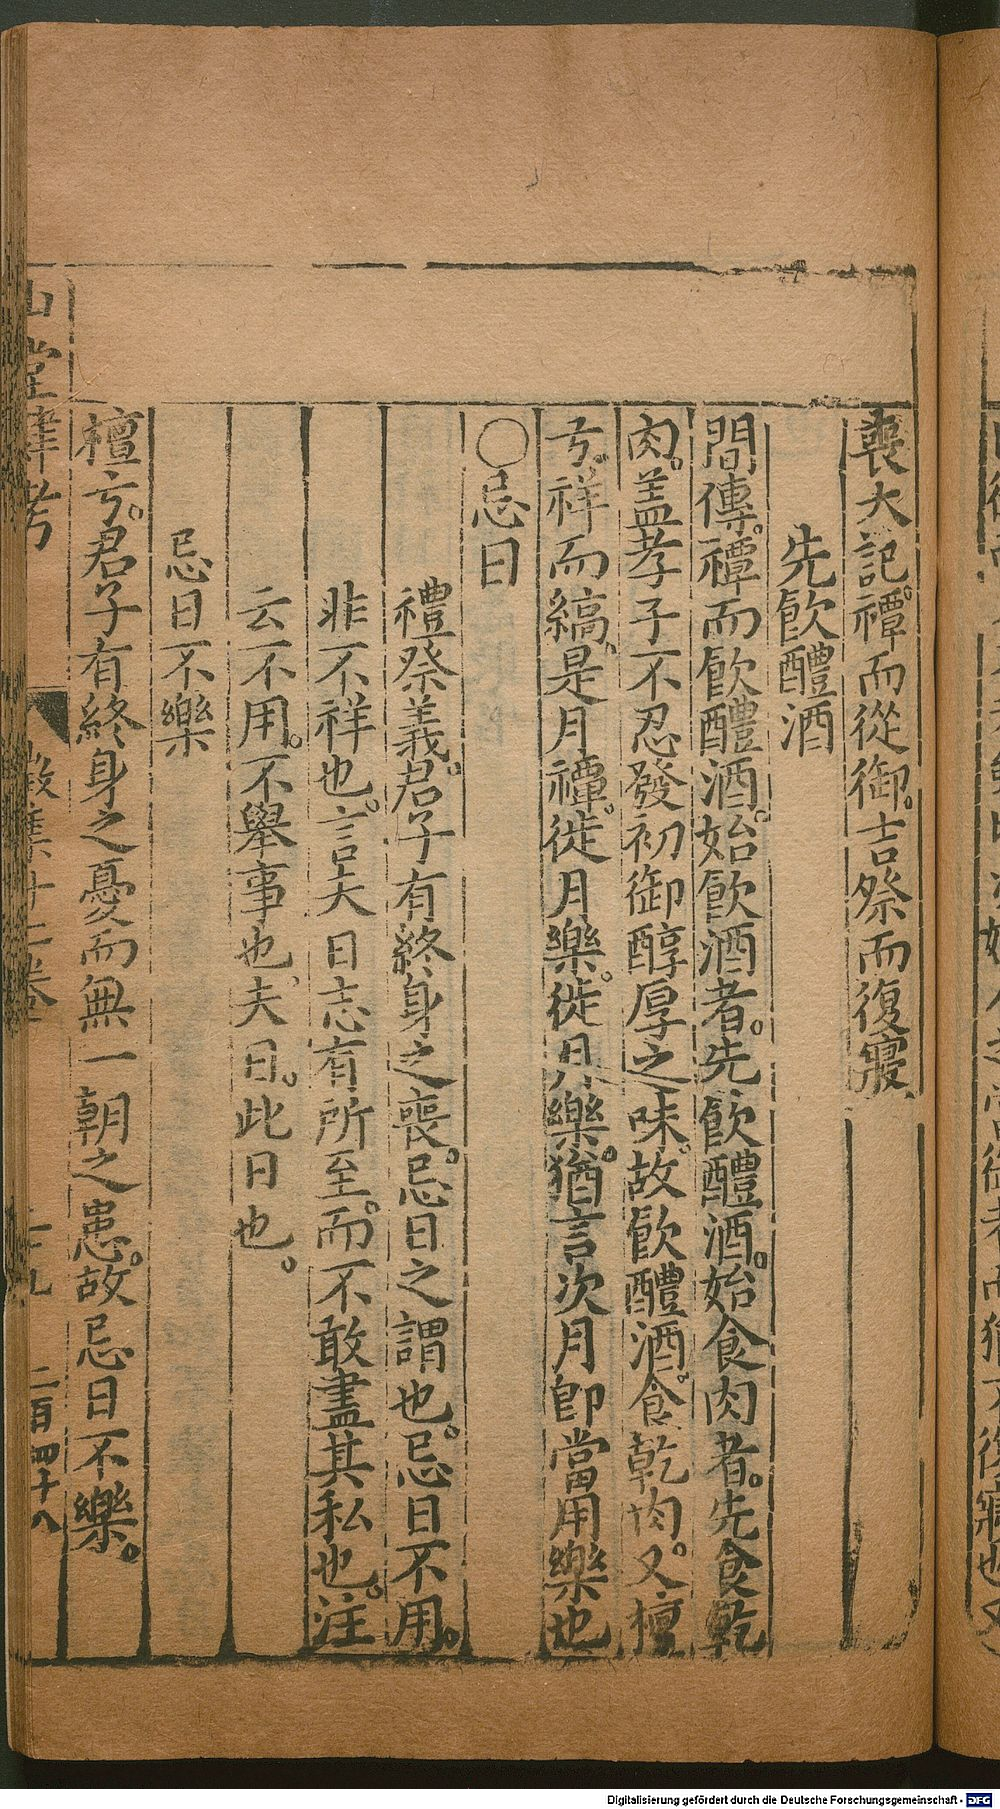 喪大記。禫而從御。吉祭而復寢
先飲醴酒
間傳。禫而飲醴酒。始飲酒者。先飲醴酒。始食肉者。先食乾
肉。盖孝子不忍發初御醇厚之味。故飲醴酒。食乾肉。又檀
弓。祥而縞。是月禫。徙月樂。徙月樂。猶言次月即當用樂也
〇忌日
禮祭義。君子有終身之喪。忌日之謂也。忌日不用。
非不祥也。言夫日志有所至。而不敢盡其私也。注
云不用。不舉事也。夫日。此日也。
忌日不樂
檀弓。君子有終身之憂而無一朝之患。故忌日不樂。
山堂肆考 徵集廿二卷 二十九 二百四十八
Digitalisierung gefördert durch die Deutsche Forschungsgemeinschaft - DFG